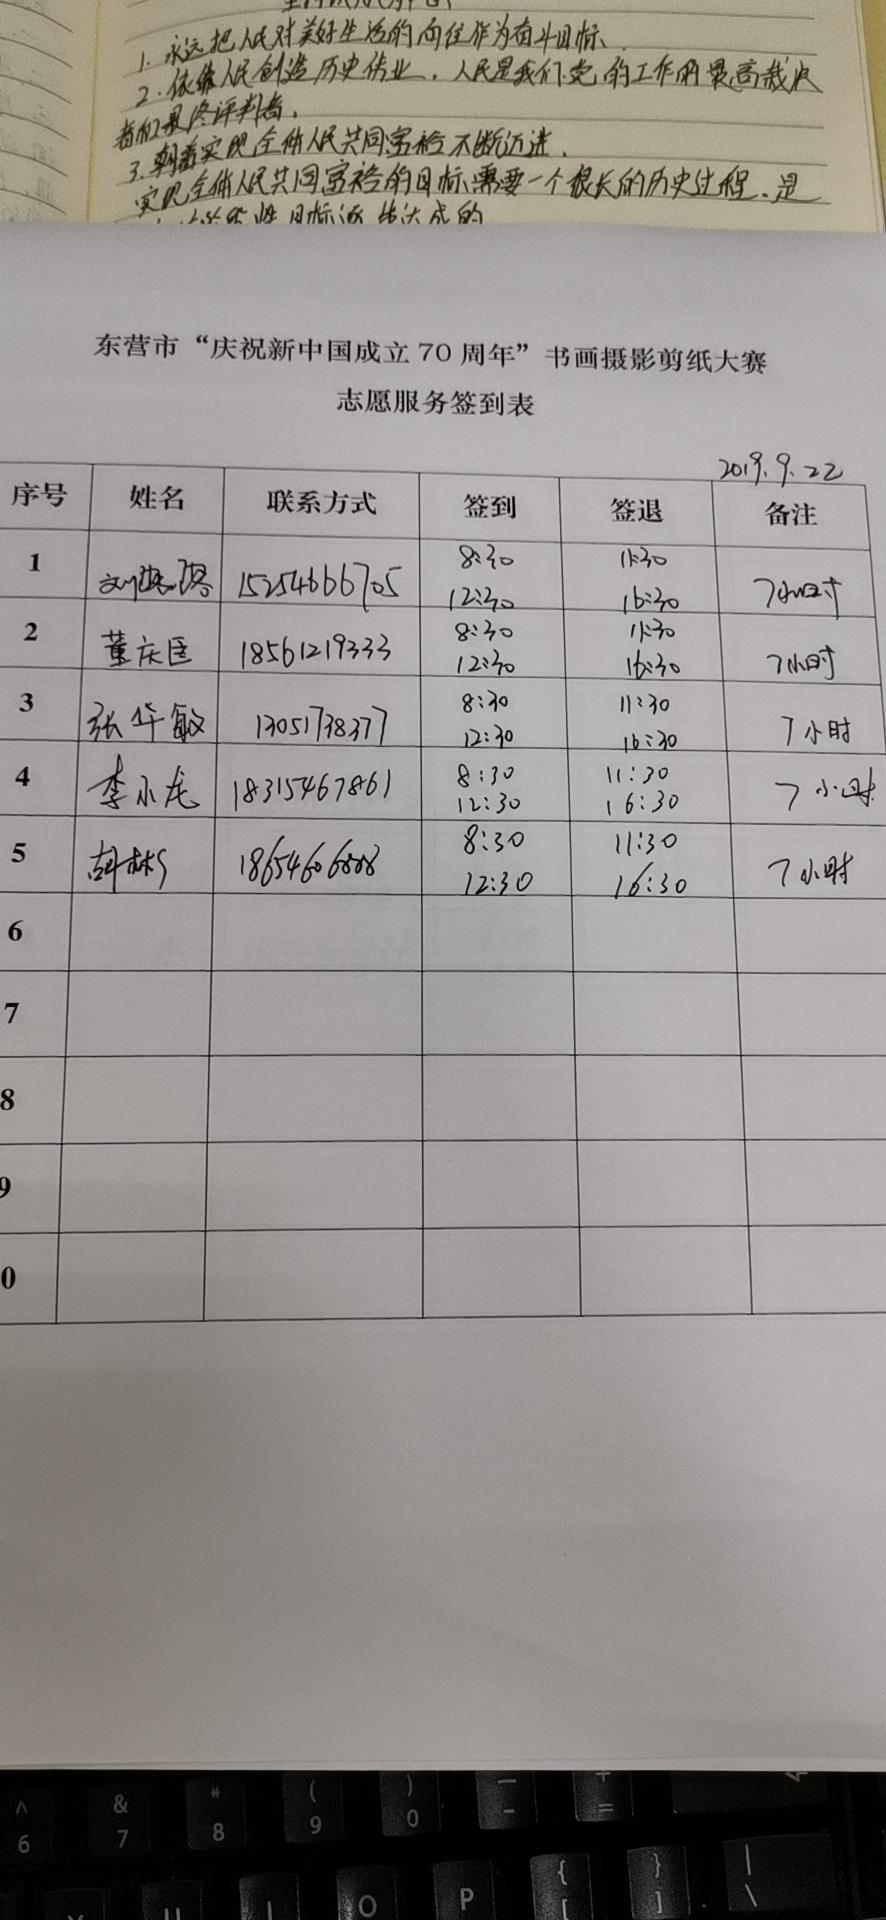 1. 永远把人民对美好生活的向往作为奋斗目标、
2. 依靠人民创造历史伟业，人民是我们党的工作的最高裁决
者和最终评判者。
3. 朝着实现全体人民共同富裕不断迈进。
实现全体人民共同富裕的目标需要一个很长的历史过程、是
目标逐步达成的
东营市“庆祝新中国成立 70 周年”书画摄影剪纸大赛
志愿服务签到表
2019.9.22
序号 姓名 联系方式 签到 签退 备注
1 刘 15254666705 8:30 11:30 7小时
12:30 16:30
2 董庆匡 18561219333 8:30 11:30 7小时
12:30 16:30
3 张华敏 13051738377 8:30 11:30 7小时
12:30 16:30
4 李小龙 18315467861 8:30 11:30 7小时
12:30 16:30
5 胡彬 18654606808 8:30 11:30 7小时
12:30 16:30
6
7
8
9
0
^ & * ( ) — +
6 7 8 9 0 - =
{ } |
U I O P [ ] \